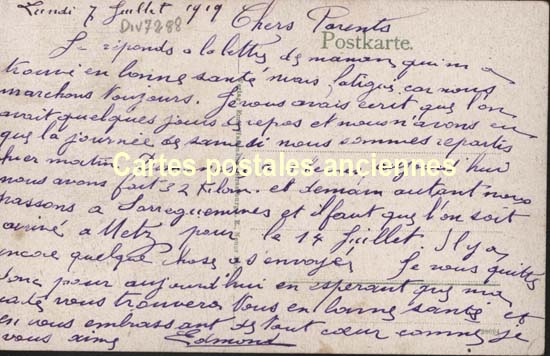 Lundi 7 Juillet 1919
Div 7288
Chers Parents
Postkarte.
Je réponds a la lettre de maman qui m a
trouvé en bonne santé mais fatigué car nous
marchons toujours. Je vous avais écrit que l'on
avait quelques jours de repos et nous n'avons eu
que la journée de samedi nous sommes repartis
hier matin
Cartes postales anciennes
nous avons fait 32 kilom. et demain autant nous
passons a Sarreguemines et il faut que l'on soit
arrivé a Metz pour le 14 Juillet. Il y a
encore quelque chose a s'envoyer Je vous quitte
donc pour aujourd'hui en espérant que ma
carte vous trouvera tous en bonne santé et
en vous embrassant de tout cœur comme je
vous aime Edmond